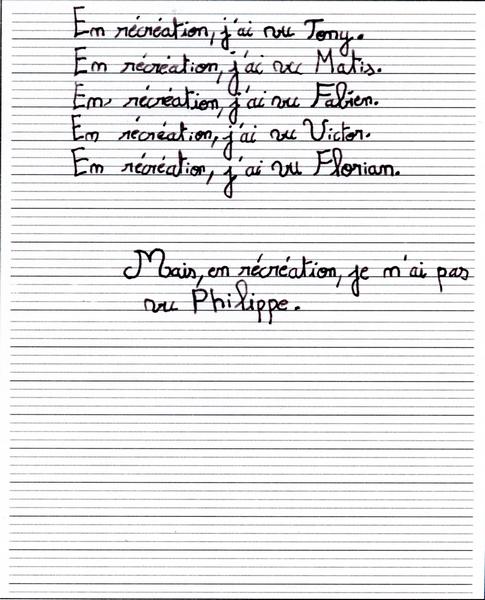 En récréation, j'ai vu Tony.
En récréation, j'ai vu Matis.
En, récréation, j'ai vu Fabien.
En récréation, j'ai vu Victor.
En récréation, j'ai vu Florian.
Mais, en récréation, je n'ai pas
vu Philippe.